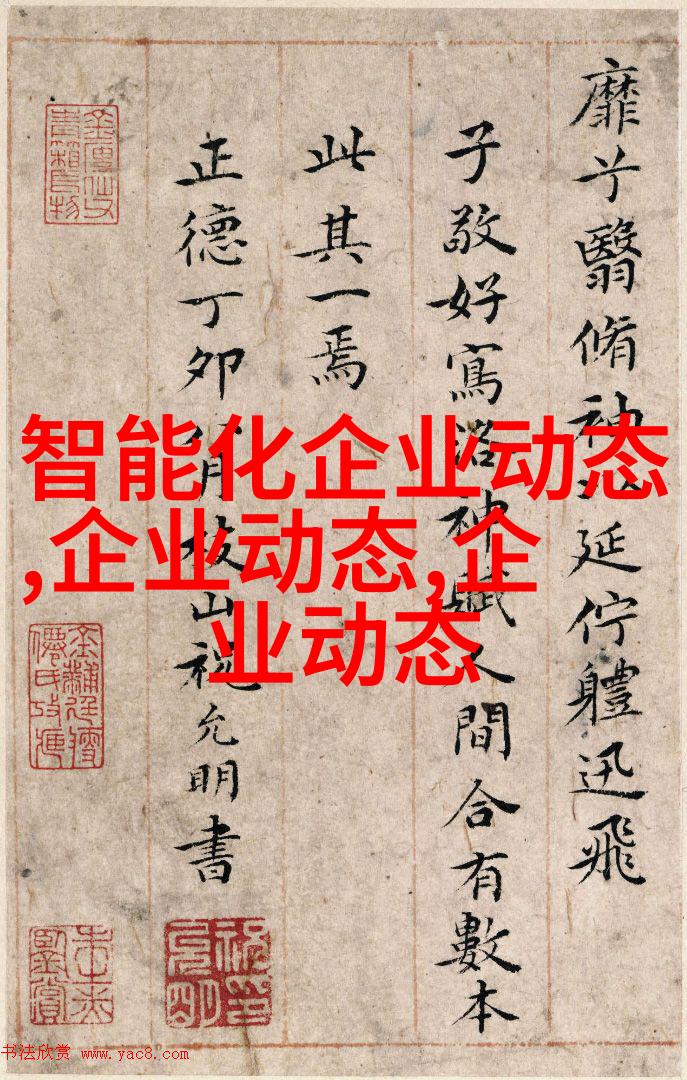 靡兮翳脩袖以延佇體迅飛
子敬好寫洛神賦人間合有數本
此其一焉
正德丁卯八月枝山祝允明書
智能化企业动态
,企业动态,企
业动态
书法欣赏 www.yac8.com